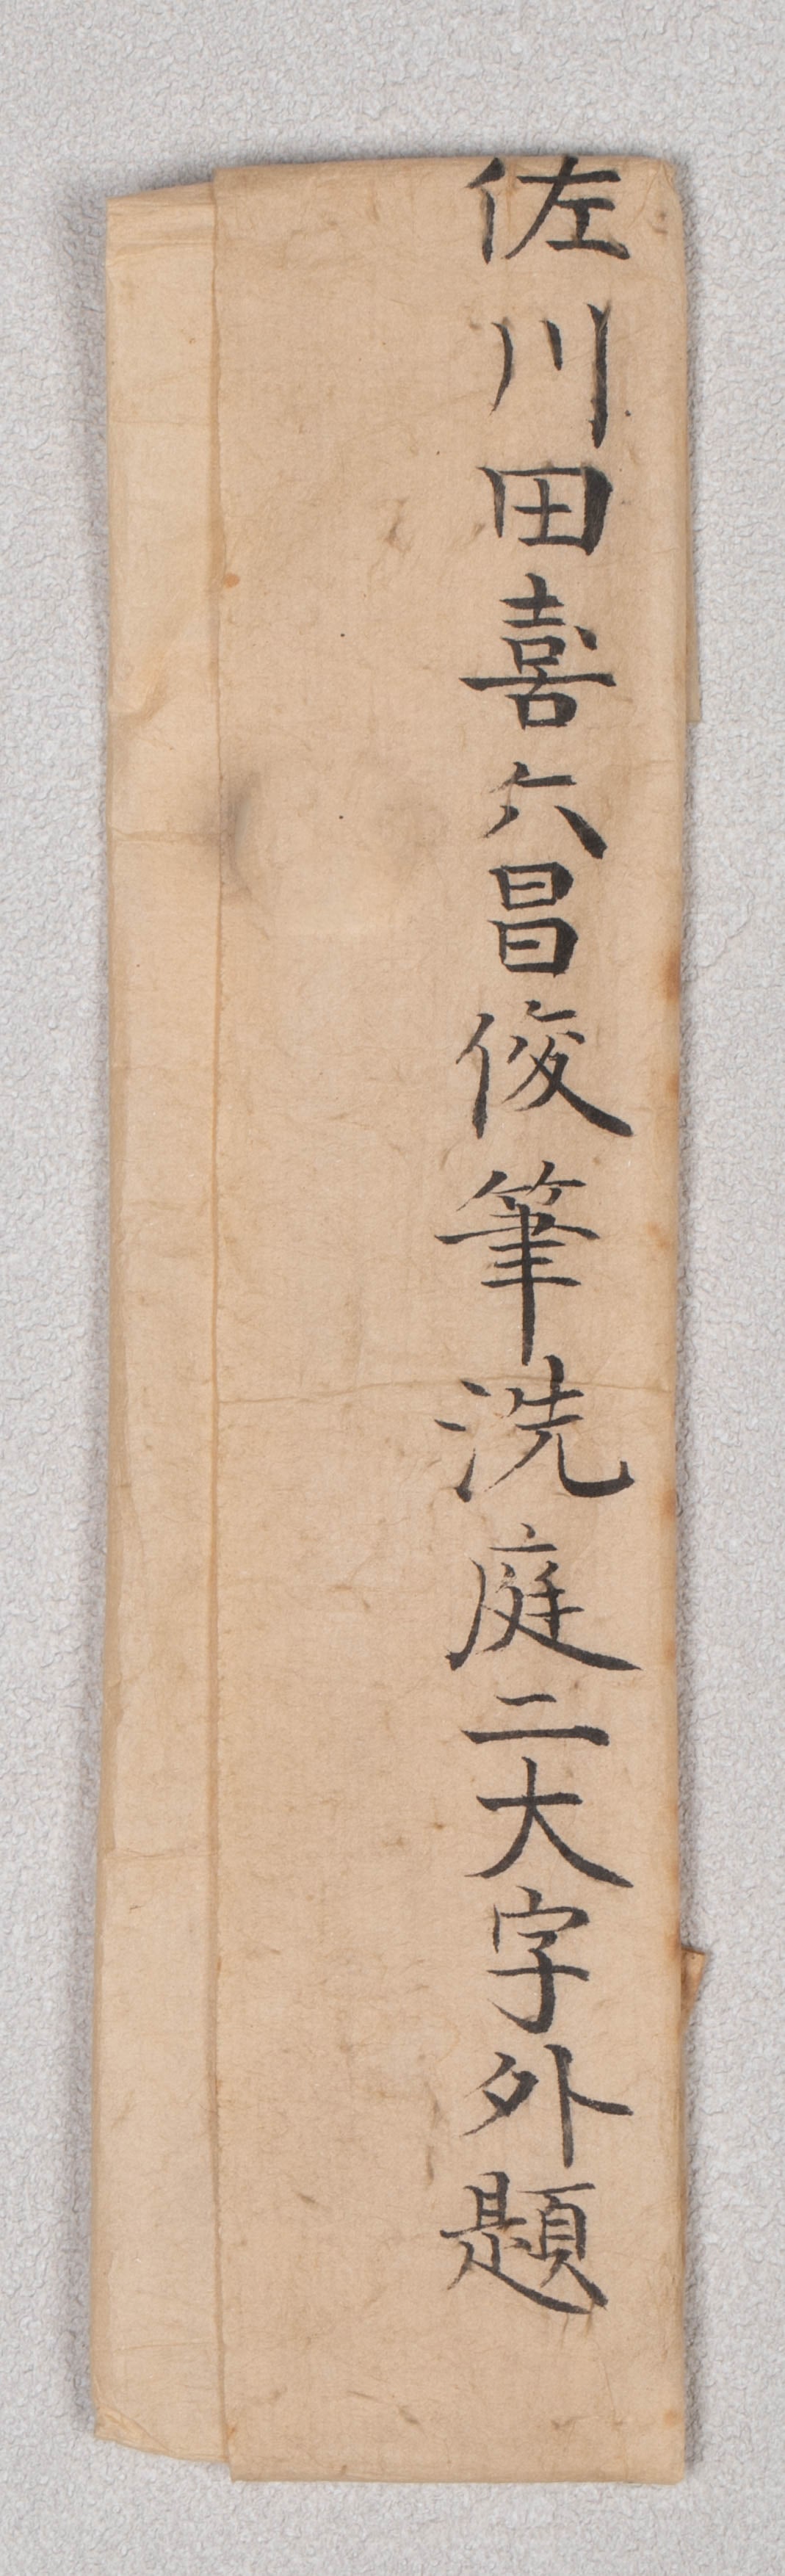 佐川田喜六昌俊筆洗庭二大字外題